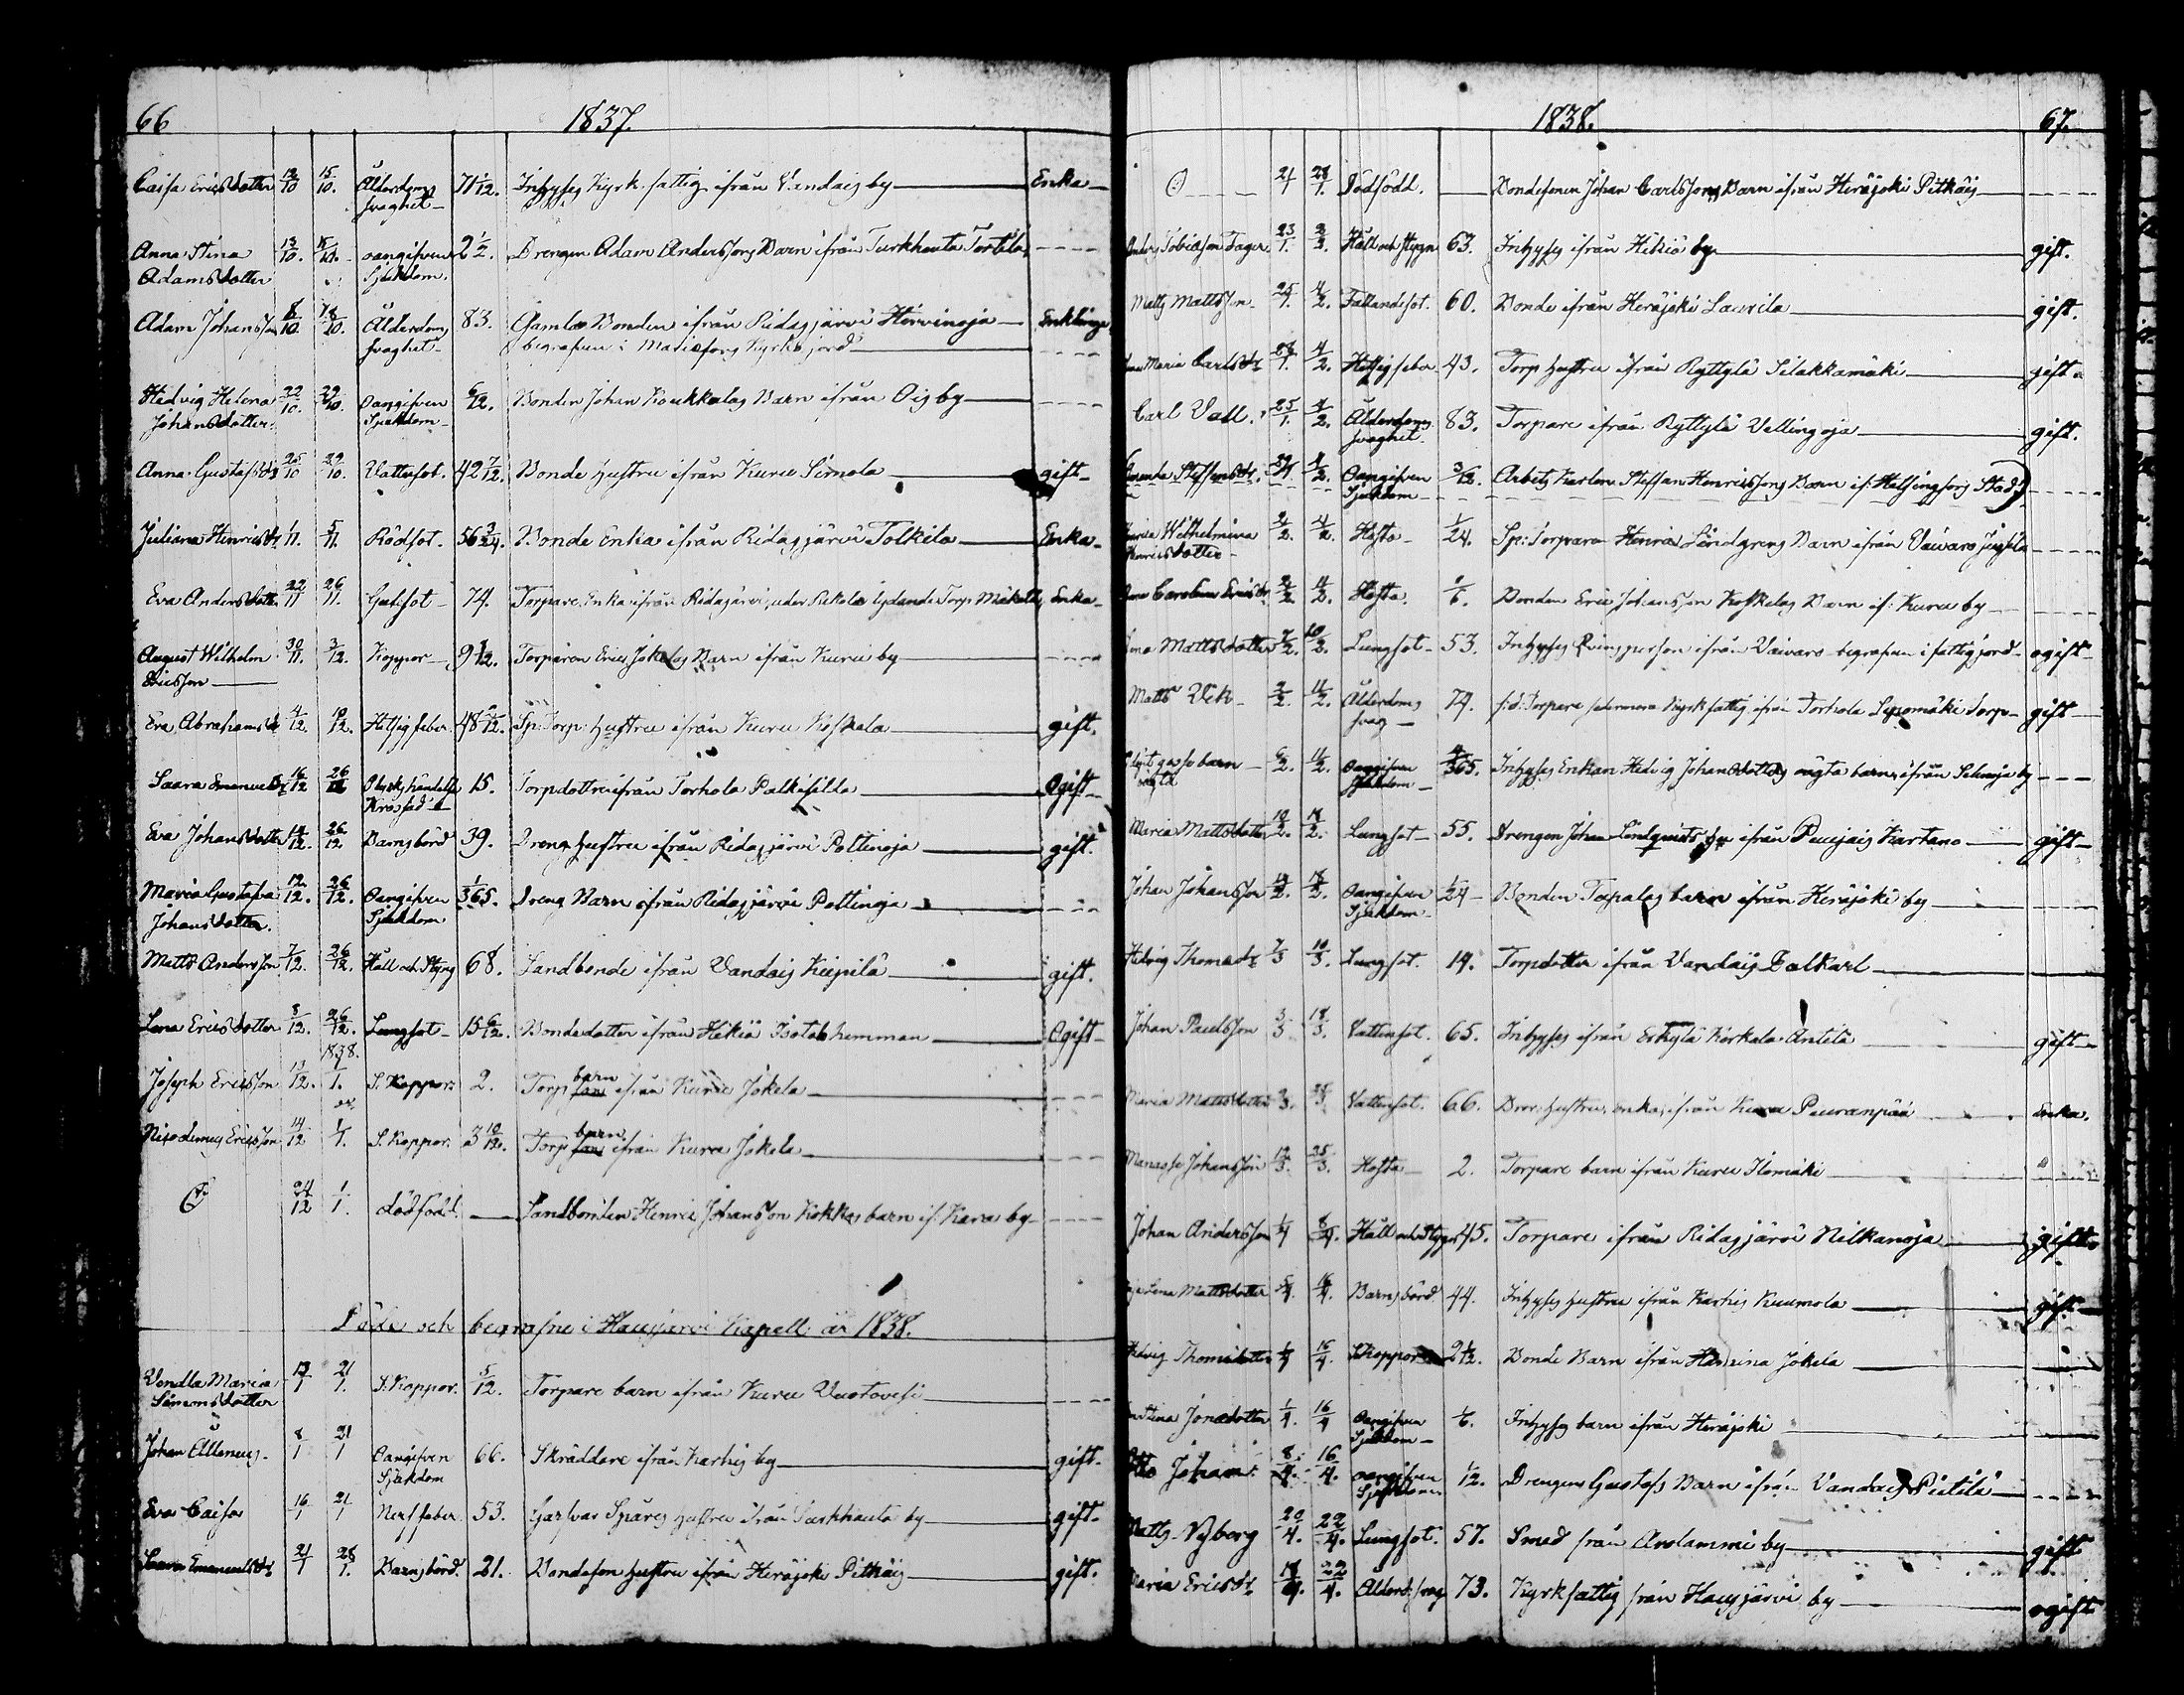 66 1837.
Caisa Ericsdotter 12/10 15/10. Ålderdoms 71 1/12. Inhyses Kyrk fattig ifrån Vandais by Enka
svaghet
Anna Stina 13/10. 15/10. oangifven 2 1/2. Drengen Adam Anderssons Barn ifrån Turkhauta Torttila
Adamsdotter Sjukdom.
Adam Johansson 8/10. 18/10. Ålderdoms 83. Gamla Bonden ifrån Ridasjärvi Hirvinoja Enkling
svaghet begrafven i Mariæfors Kyrkojord
Hedvig Helena 22/10. 29/10. Oangifven 6/12. Bonden Johan Koukkalas Barn ifrån Ois by
Johansdotter. Sjukdom
Anna Gustafsdr 25/10 29/10. Vattusot. 42 7/12. Bonde hustru ifrån Kuru Simola gift
Juliana Henricsdr 1/11. 5/11. Rödsot. 56 3/4. Bonde Enka ifrån Ridasjärvi Tolkila Enka
Eva Andersdotter 22/11 26/11. Gulsot 74. Torpare Enka ifrån Ridasjärvi, under lydande Torp Enka
August Wilhelm 30/11. 3/12. Koppor 9 1/12. Torparen Eric Jokelas Barn ifrån Kuru by
Ericsson
Eva Abrahamsdr 4/12. 10/12. Hetsig feber 48 /12. Sp: Torp: hustru ifrån Kuru Koskela gift.
Saara Emanuelsdr 16/12 26/12 Olyckshändelse 15. Torpdotter ifrån Torhola Palkisilda Ogift
Eva Johansdotter 14/12. 26/12 Barnsbörd 39. Dreng hustru ifrån Ridasjärvi Pottinoja gift.
Maria Gustafva 12/12. 26/12. Oangifven 1/365. Dreng Barn ifrån Ridasjärvi Pottinoja
Johansdotter. Sjukdom
Matts Andersson 7/12. 26/12. Håll och Styng 68. Landbonde ifrån Vandais Kiipilä gift.
Lena Ericsdotter 8/12. 26/12. Lungsot 15 6/12. Bondedotter ifrån Hikiä hemman Ogift
1838.
Joseph Ericsson 13/12. 1/1. S. Koppor 2. Torp barn ifrån Kuru Jokela
Nicodemus Ericsson 14/12 1/1. S. Koppor. 3 10/12. Torp barn ifrån Kuru Jokela
24/12 1/1. dödfödd. Landbonden Henric Johansson Kokkos barn if: Kara by
Döde och begrafne i Hausjärvi Kapell år 1838.
Vendla Maria 13/1 21/1. S. Koppor. 5/12. Torpare barn ifrån Kuru
Simonsdotter
Johan Allenius. 8/1 21/1 Oangifven 66. Skräddare ifrån Karhis by gift.
Sjukdom
Eva Caisa 16/1 21/1 Nerffeber 53. hustru ifrån Turkhauta by gift.
Saara Emanuelsdr 21/1 28/1. Barnsbörd. 21. Bondeson hustru ifrån Herajoki Pitkäis gift.
1838. 67.
21/1 28/1. Dödfödd. Bondesonen Johan Carlssons Barn ifrån Herajoki Pitkäis
Anders Tobiasson Fager 23/1. 2/2. Håll och styng 63. Inhyses ifrån Hikiä by gift.
Matts Mattsson 25/1. 4/2. Fallandesot. 60. Bonde ifrån Herajoki Laurila gift.
Maria Carlsdr 28/1. 4/2. Hetsig feber 43. Torp hustru ifrån Ryttylä Silakkamäki gift
Carl Vall. 25/1. 4/2. Ålderdoms 83. Torpare ifrån Ryttylä Vellingoja gift.
svaghet.
Steffansdr. 4/2. Oangifven 3/12. Arbets Karlen Steffan Henricssons Barn if: Helsingfors Stad
Sjukdom
Maria Wilhelmina 2/2. 4/2. Hosta 1/24. Sp: Torparen Henric Lindgrens Barn ifrån Vaivaro
Henricsdotter
Carolina Ericsdr 2/2. 4/2. Hosta. 1/6. Bonden Eric Johansson Koskelas Barn if: Kuru by
Mattsdotter 7/2. 10/2. Lungsot 53. Inhyses Qvinsperson ifrån Vaivaro begrafven i fattigjord ogift
Matts 2/2. 11/2. Ålderdoms 74. f:d: Torpare Kyrkfattig ifrån Torhola Torp gift
svag
gosse barn 6/2. 11/2. Oangifven 4/365. Inhyses Enkan Hedvig Johansdotters oägta barn ifrån Selänoja by
oägta Sjukdom
Maria Mattsdotter 10/2. 18/2. Lungsot 55. Drengen Johan Lindqvists hu ifrån Puujais Kartano gift
Johan Johansson 14/2. 18/2. Oangifven 1/24 Bonden Torpalas barn ifrån Herajoki by
Sjukdom
Hedvig Thomasdr 7/3 10/3. Lungsot. 19. Torpdotter ifrån Vandais
Johan Paulsson 3/3 18/3. Vattusot. 65. Inhyses ifrån Erkylä Kerkola Antila gift
Maria Mattsdotter 25/3 Vattusot. 66. hustru, enka, ifrån Kuru Puuranpää Enka.
Manasse Johansson 19/3. 25/3. Hosta 2. Torpare barn ifrån Kuru Ilomäki
Johan Andersson 1/4 8/4. Håll och Styng 45. Torpare ifrån Ridasjärvi Nilkanoja gift
Lena Mattsdotter 5/4. 16/4. Barnsbörd 44. Inhyses hustru ifrån Karhis Kuumola gift.
Hedvig Thomasdotter 16/4. S. Koppor 2 1/12. Bonde Barn ifrån Jokela
Jonasdotter 1/4. 16/4 Oangifven 1/6. Inhyses barn ifrån Herajoki
Sjukdom
Otto Johan 8/4. 16/4. oangifven 1/12. Drengen Gustafs Barn ifrån Vandais Pietilä
Sjukdom
Matts Nyberg 20/4. 22/4. Lungsot. 57. Smed från Arolammi by gift
Maria Ericsdr 18/4. 22/4. Ålderd:svag 73. Kyrkfattig från Hausjärvi by ogift